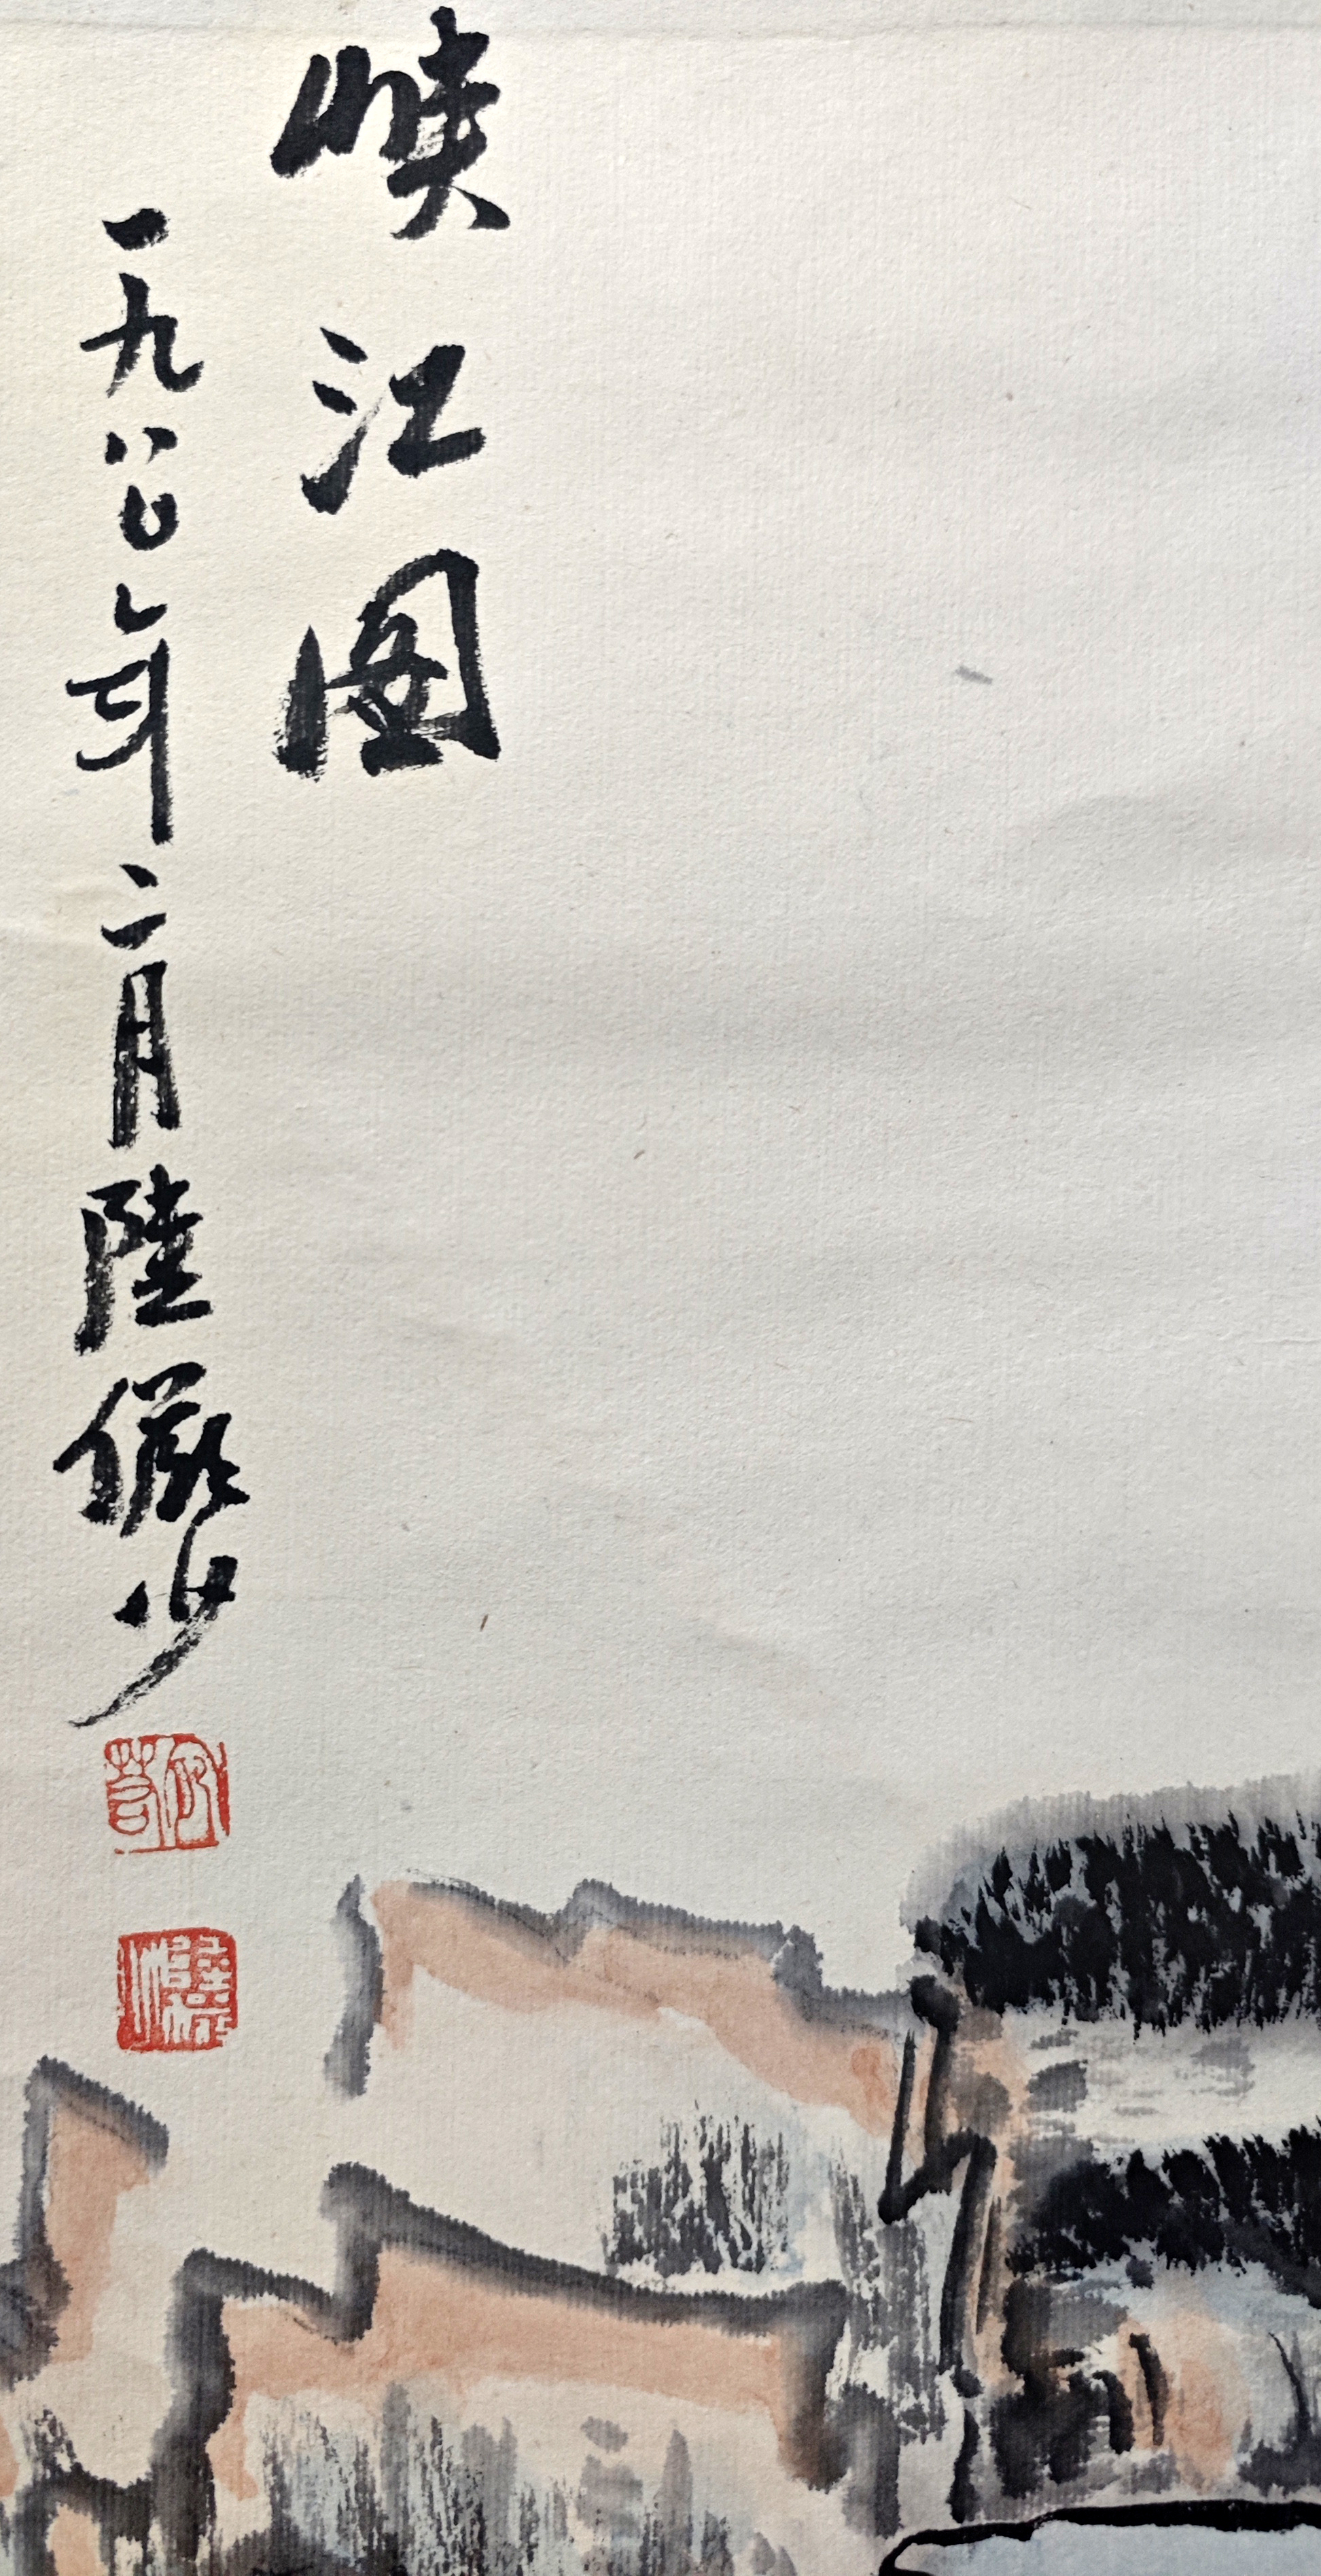 峽江圖
一九八〇年二月陸儼少
宛若